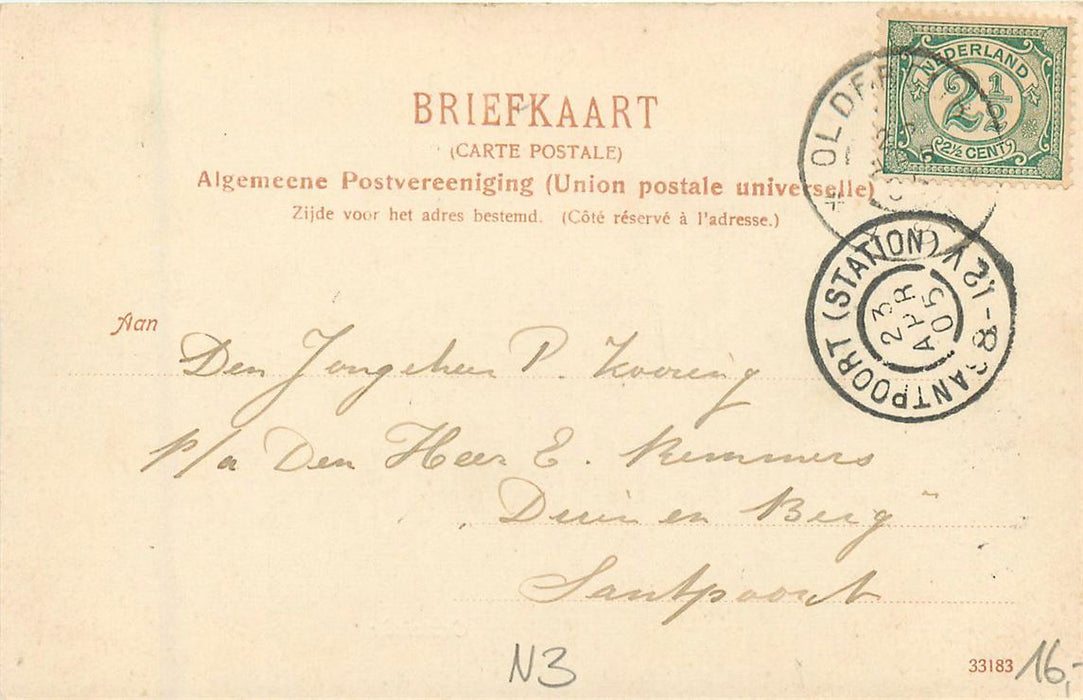 NEDERLAND
2½
2½ CENT
BRIEFKAART
(CARTE POSTALE)
Algemeene Postvereeniging (Union postale universelle)
Zijde voor het adres bestemd. (Côté réservé à l'adresse.)
SANTPOORT (STATION)
8-12V
23
APR
05
Aan
Den Jongeheer P. Kooring
p/a Den Heer E. Remmers
„Duin en Berg"
Santpoort
N3
33183
16,-